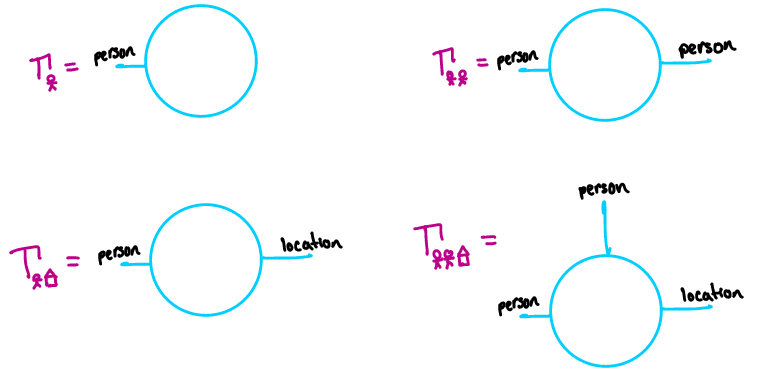 T = person
T = person person
T = person location
person
T =
person location